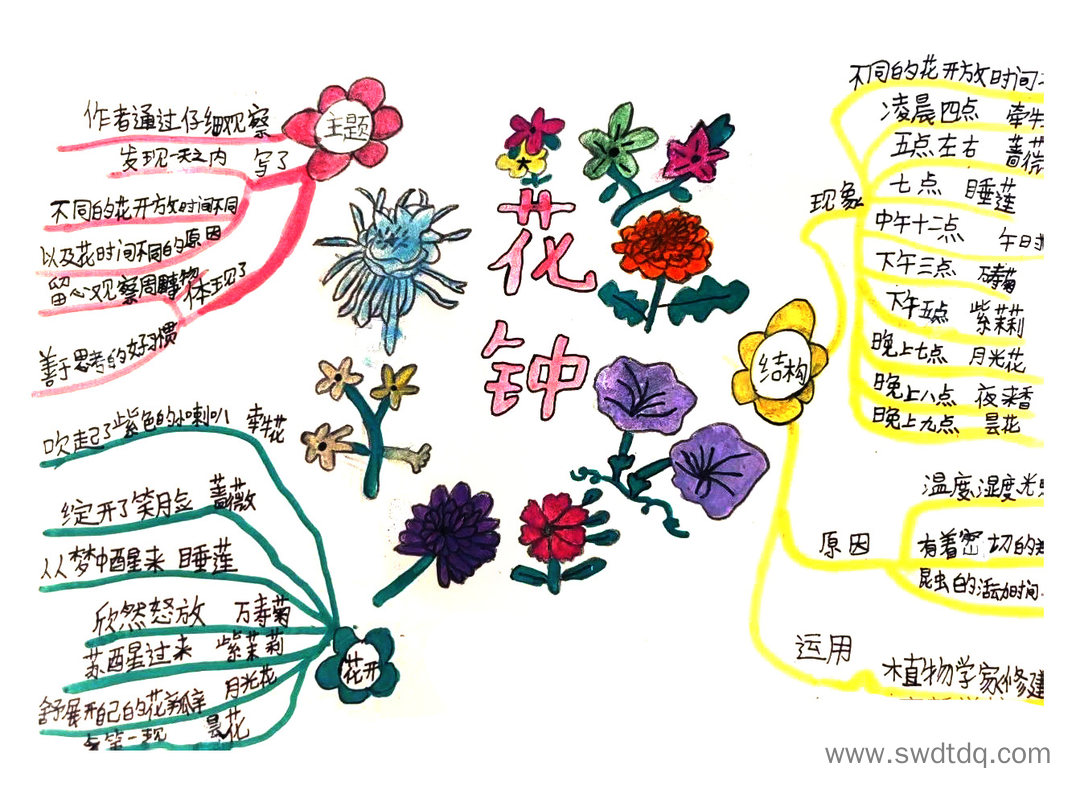 花钟
主题
作者通过仔细观察
发现一天之内 写了
不同的花开放时间不同
以及花时间不同的原因
留心观察周围事物
体现了
善于思考的好习惯
花开
吹起了紫色的小喇叭 牵牛花
绽开了笑脸 蔷薇
从梦中醒来 睡莲
欣然怒放 万寿菊
苏醒过来 紫茉莉
舒展开自己的花瓣 月光花
笑一现 昙花
结构
现象
不同的花开放时间
凌晨四点 牵牛
五点左右 蔷薇
七点 睡莲
中午十二点 午时
下午三点 万寿菊
下午五点 紫茉莉
晚上七点 月光花
晚上八点 夜来香
晚上九点 昙花
原因
温度湿度光
有着密切的
昆虫的活动时间
运用
植物学家修建
www.swdtdq.com